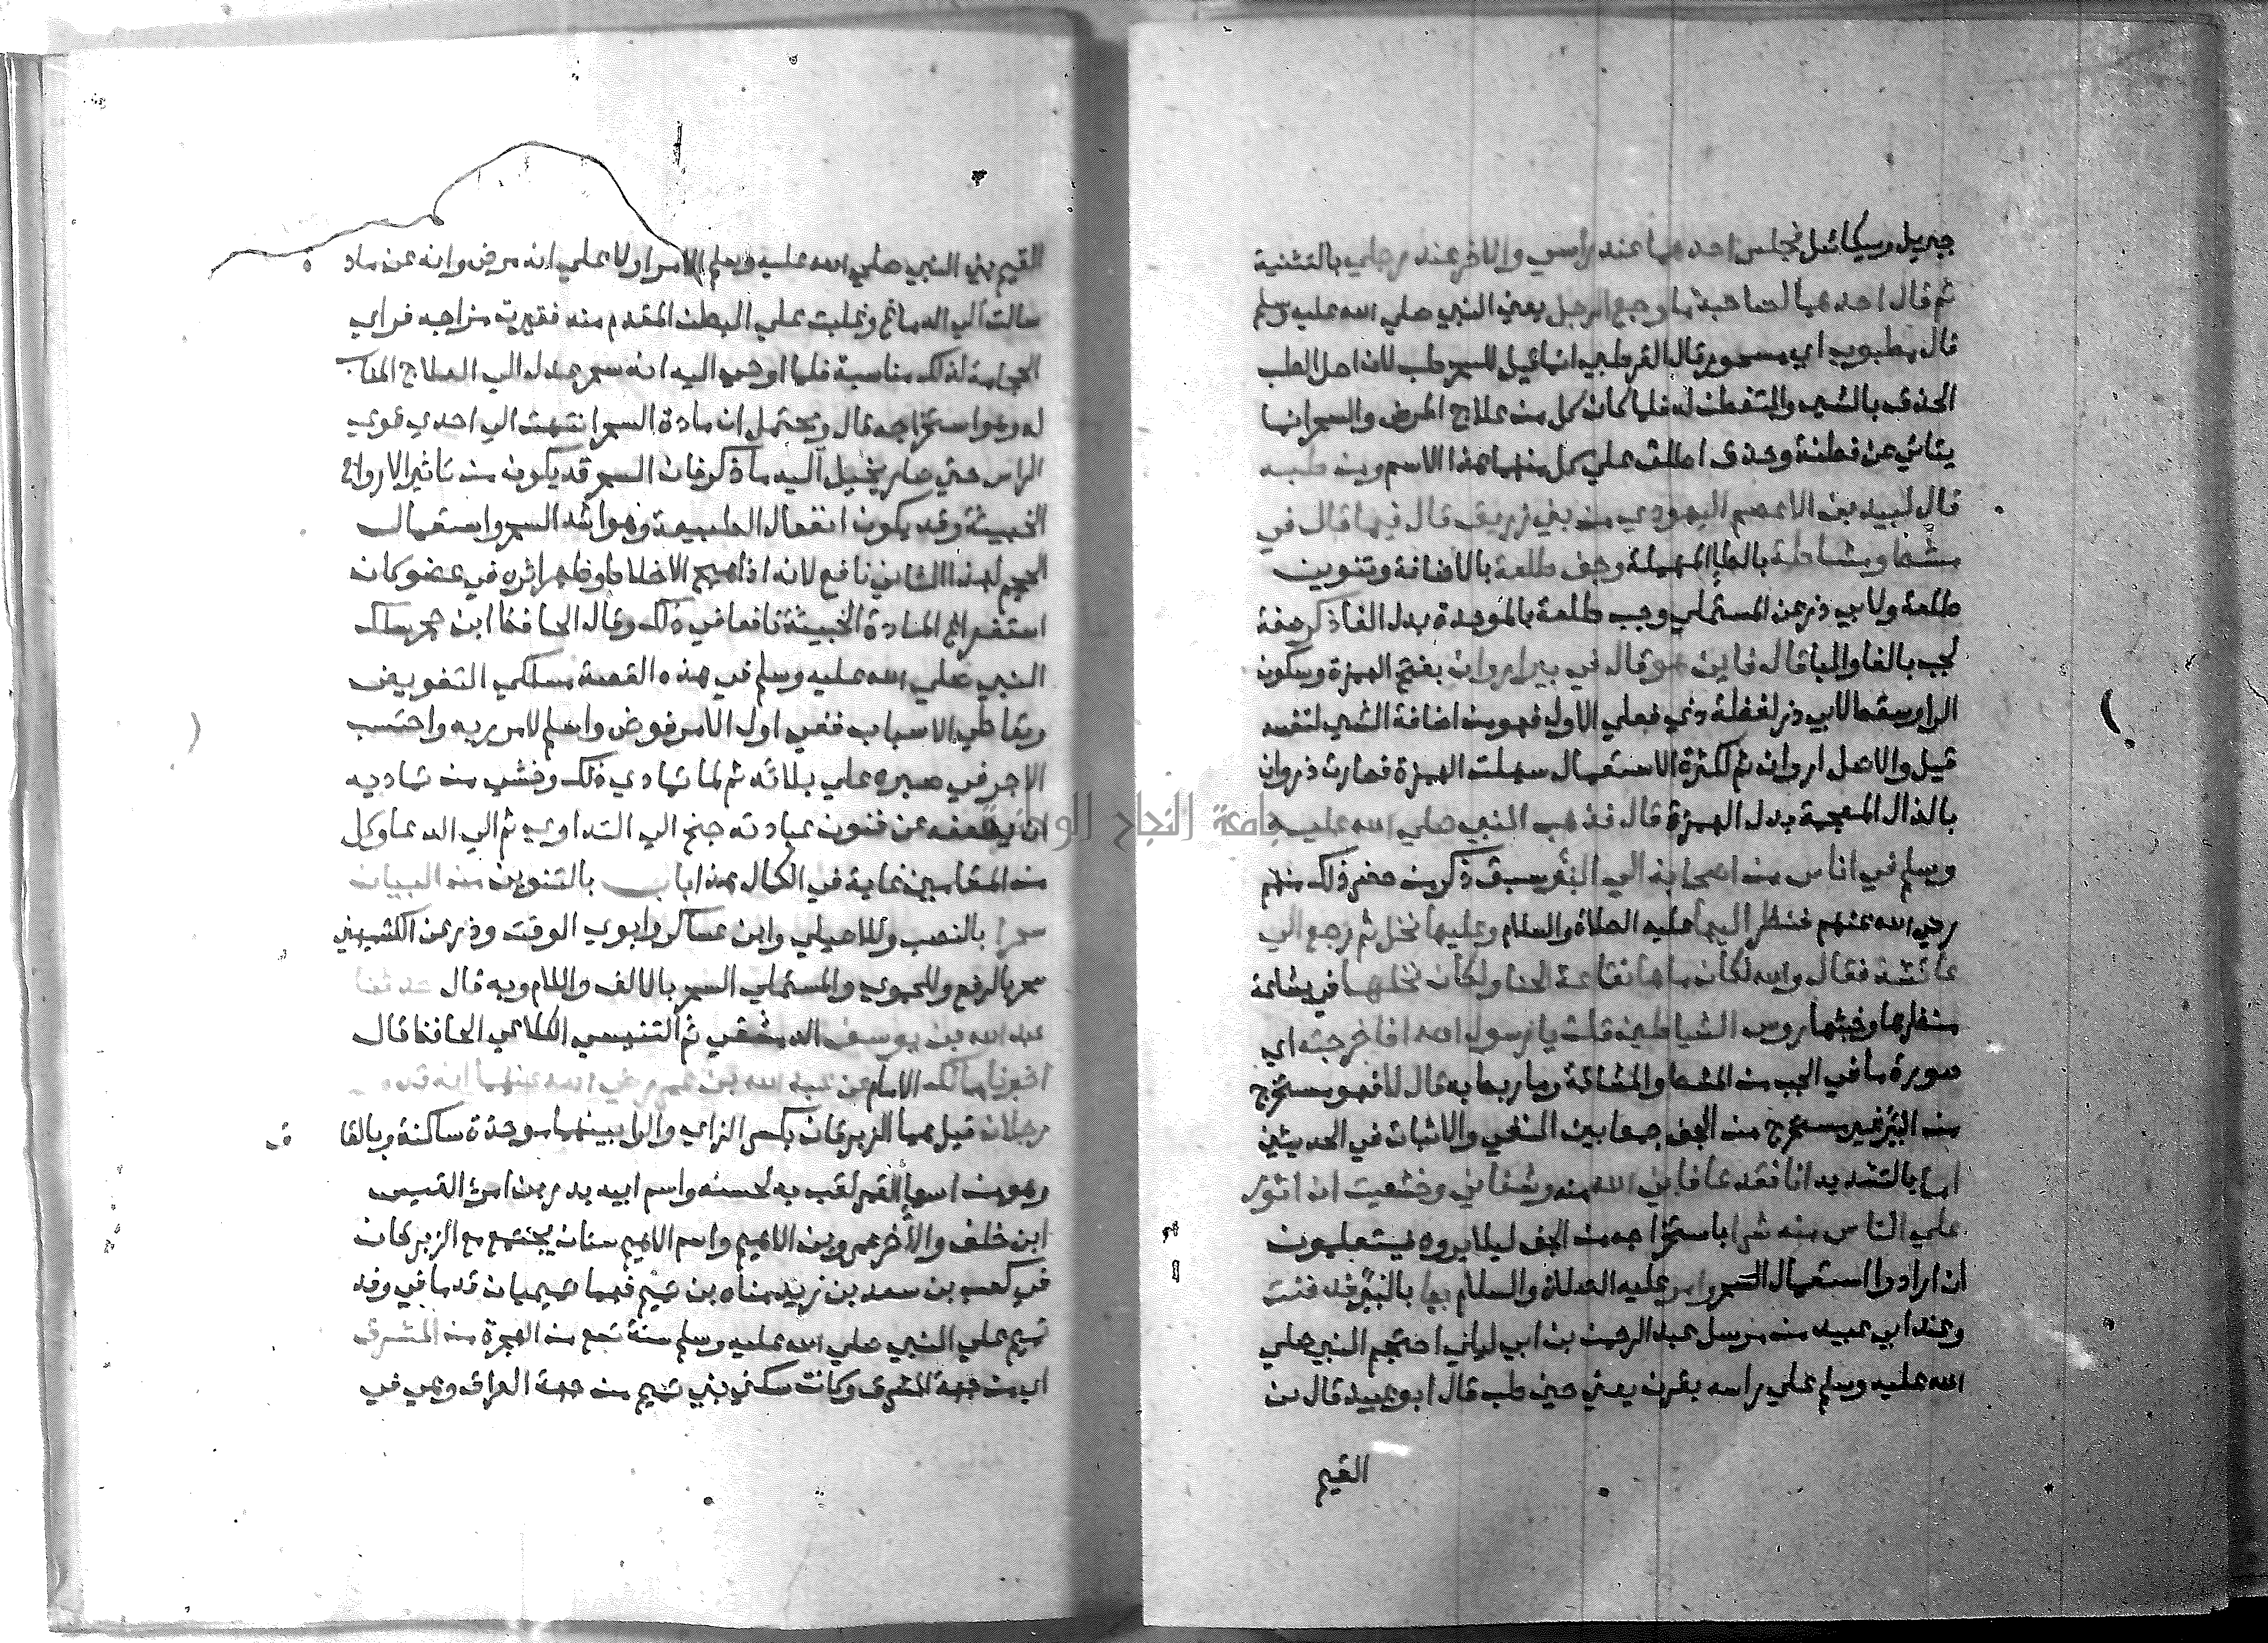 جبريل وميكائيل فجلس احدهما عند راسي والاخر عند رجلي بالتثنية
ثم قال احدهما لصاحبه ما وجع الرجل يعني النبي صلي الله عليه وسلم
قال مطبوب اي مسحور قال القرطبي انما قيل للسحر طب لان اصل الطب
الحذق بالشي والتفطن له فلما كان كل من علاج المرض والسحر انما
يتاتي عن فطنة وحذق اطلق علي كل منهما هذا الاسم ومن طبه
قال لبيد بن الاعصم اليهودي من بني زريق قال فيما قال في
مشط ومشاطة بالطا المهملة وجف طلعة بالاضافة وتنوين
طلعة ولابي ذر عن المستملي وجب طلعة بالموحدة بدل الفا ذكر صفة
لجب بالفا والبا قال فاين هو قال في بير اروان بفتح الهمزة وسكون
الرا وسقط لابي ذر لفظة ذي فعلي الاول فهو من اضافة الشي لنفسه
قيل والاصل اروان ثم لكثرة الاستعمال سهلت الهمزة فصارت ذروان
بالذال المعجمة بدل الهمزة قال فذهب النبي صلي الله عليه
وسلم في اناس من اصحابه الي البئر سبق ذكر من حضر ذلك منهم
رضي الله عنهم فنظر اليها عليه الصلاة والسلام وعليها نخل ثم رجع الي
عائشة فقال والله لكأن ماءها نقاعة الحنا ولكأن نخلها في بشاعة
منظرها وخبثها روس الشياطين قلت يا رسول الله افاخرجته اي
صورة ما في الجب من المشط والمشاطة وما ربط به قال لا فهو مستخرج
من البئر غير مستخرج من الجف جمعا بين النفي والاثبات في الحديثين
اما بالتشديد انا فقد عافاني الله منه وشفاني وخشيت ان اثور
علي الناس منه شرا باستخراجه من الجف ليلا يروه فيتعلمون
ان ارادوا استعمال السحر وامر عليه الصلاة والسلام بها بالبئر فدفنت
وعند ابي عبيد من مرسل عبد الرحمن بن ابي ليلي احتجم النبي صلي
الله عليه وسلم علي راسه بقرن يعني حين طب قال ابو عبيد قال بن
القيم
القيم بني النبي صلي الله عليه وسلم الامر اولا علي انه مرض وانه عن ماد ه
سالت الي الدماغ وغلبت علي البطن المقدم منه فغيرت مزاجه فراي
الحجامة لذلك مناسبة فلما اوحي اليه انه سحر عدل الي العلاج المناسب
له وهو استخراجه قال ويحتمل ان مادة السحر انتهت الي احدي قوي
الراس حتي صار يخيل اليه ما ذكر فان السحر قد يكون من تاثير الارواح
الخبيثة وقد يكون انفعال الطبيعة وهو اشد السحر واستعمال
الحجم لهذا الثاني نافع لانه اذا هيج الاخلاط وظهر اثره في عضو كان
استفراغ المادة الخبيثة نافعا في ذلك وقال الحافظ ابن حجر سلك
النبي صلي الله عليه وسلم في هذه القصة مسلكي التفويض
وتعاطي الاسباب ففي اول الامر فوض واسلم لامر ربه واحتسب
الاجر في صبره علي بلائه ثم لما تمادي ذلك وخشي من تماديه
ان يضعفه عن فنون عبادته جنح الي التداوي ثم الي الدعا وكل
من المقامين غاية في الكمال هذا باب بالتنوين من البيان
سحرا بالنصب وللاصيلي وابن عساكر وابوي الوقت وذر عن الكشميهني
سحر بالرفع وللحموي والمستملي السحر بالالف واللام وبه قال حدثنا
عبد الله بن يوسف الدمشقي ثم التنيسي الكلاعي الحافظ قال
اخبرنا مالك الامام عن عبد الله بن عمر رضي الله عنهما انه قدم
رجلان قيل هما الزبرقان بكسر الزاي والرا بينهما موحدة ساكنة وبالقا ف
وهو من اسما القمر لقب به لحسنه واسم ابيه بدر بن امرئ القيس
ابن خلف والاخر عمرو بن الاهيم واسم الاهيم سنان يجتمع مع الزبرقان
في كعب بن سعد بن زيد مناه بن تميم فهما تميميان قدما في وفد
تميم علي النبي صلي الله عليه وسلم سنة تسع من الهجرة من المشرق
اي من جهة المشرق وكانت سكني بني تميم من جهة العراق وهي في
جامعة النجاح الوطنية